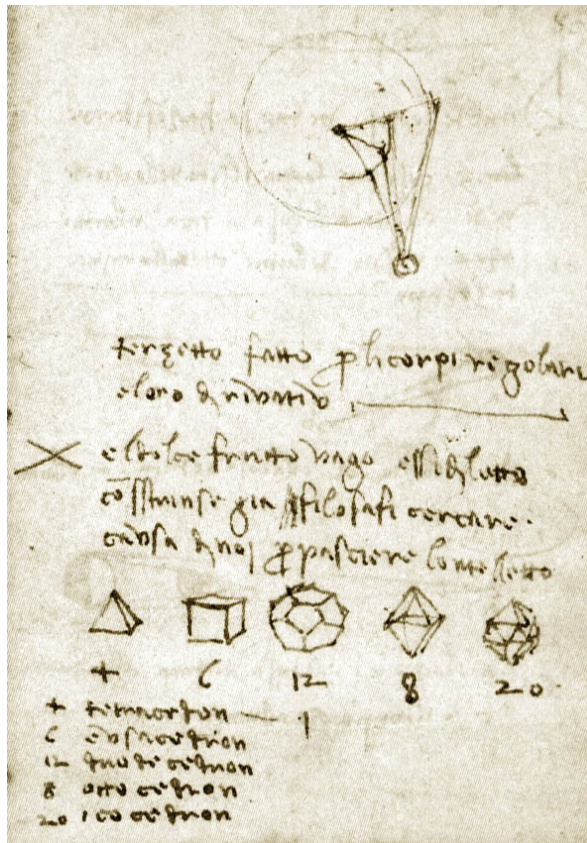 terzetto fatto p licorpi regolari
e loro dirivativi
el dolce frutto vago essi diletto
cōstrinse gia ifilosafi cercare
causa di noi p pasciere lontelletto
4 6 12 8 20
4 tetracedron 1
6 exsacedron
12 duodecedron
8 ottocedron
20 icocedron